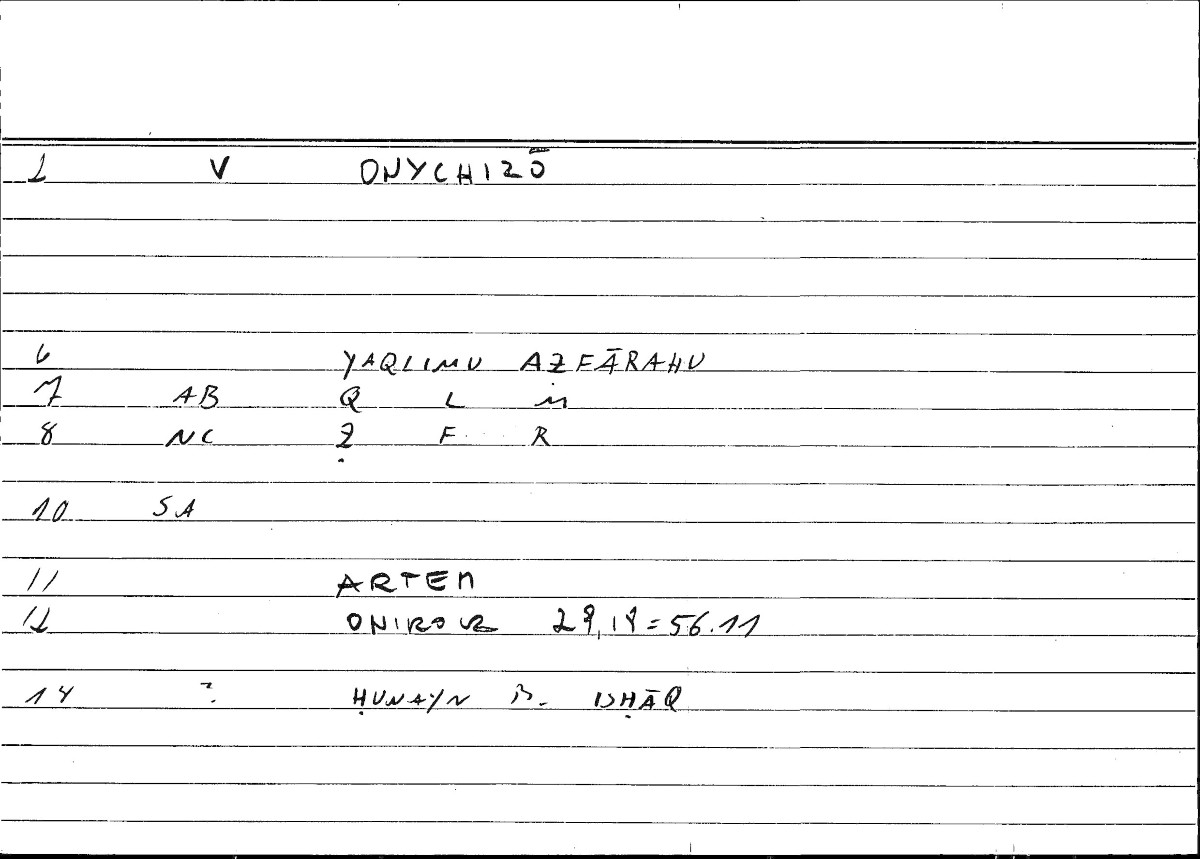 1 V ONYCHIZŌ
6 YAQLIMU AẒFĀRAHU
7 AB Q L M
8 NC Ẓ F R
10 SA
11 ARTEM
12 ONIROCR 28,18=56.11
14 ? ḤUNAYN B. ISḤĀQ